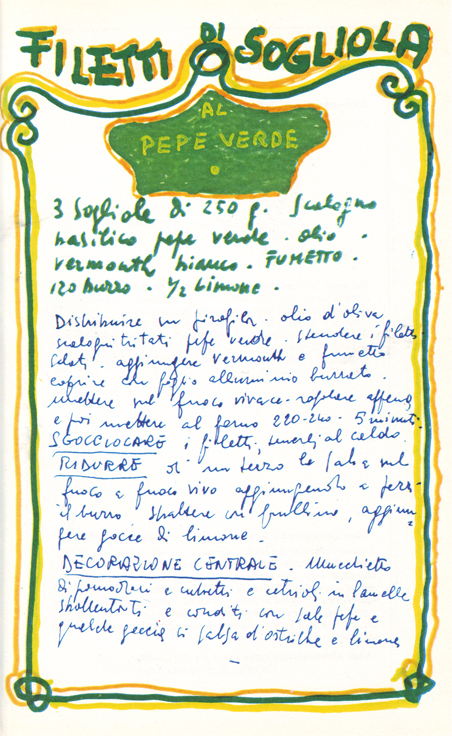 FILETTI DI SOGLIOLA
AL
PEPE VERDE
3 Sogliole di 250 g. Scalogno
basilico pepe verde. olio.
vermouth bianco. FUMETTO.
120 burro. 1/2 Limone.
Distribuire in pirofila. olio d'oliva
scalogni tritati pepe verde. stendere i filetti
salati. aggiungere vermouth e fumetto
coprire con foglio alluminio burrato.
mettere sul fuoco vivace. appena
e poi mettere al forno 220-240. 5 minuti.
SGOCCIOLARE i filetti, tenerli al caldo.
RIDURRE di un terzo la salsa sul
fuoco a fuoco vivo aggiungendo a pezzi
il burro sbattere con frullino, aggiun=
gere gocce di limone.
DECORAZIONE CENTRALE. Mucchietto
di pomodori a cubetti e cetrioli in lamelle
sbollentati e conditi con sale pepe e
qualche goccia di salsa d'ostriche e limone
—